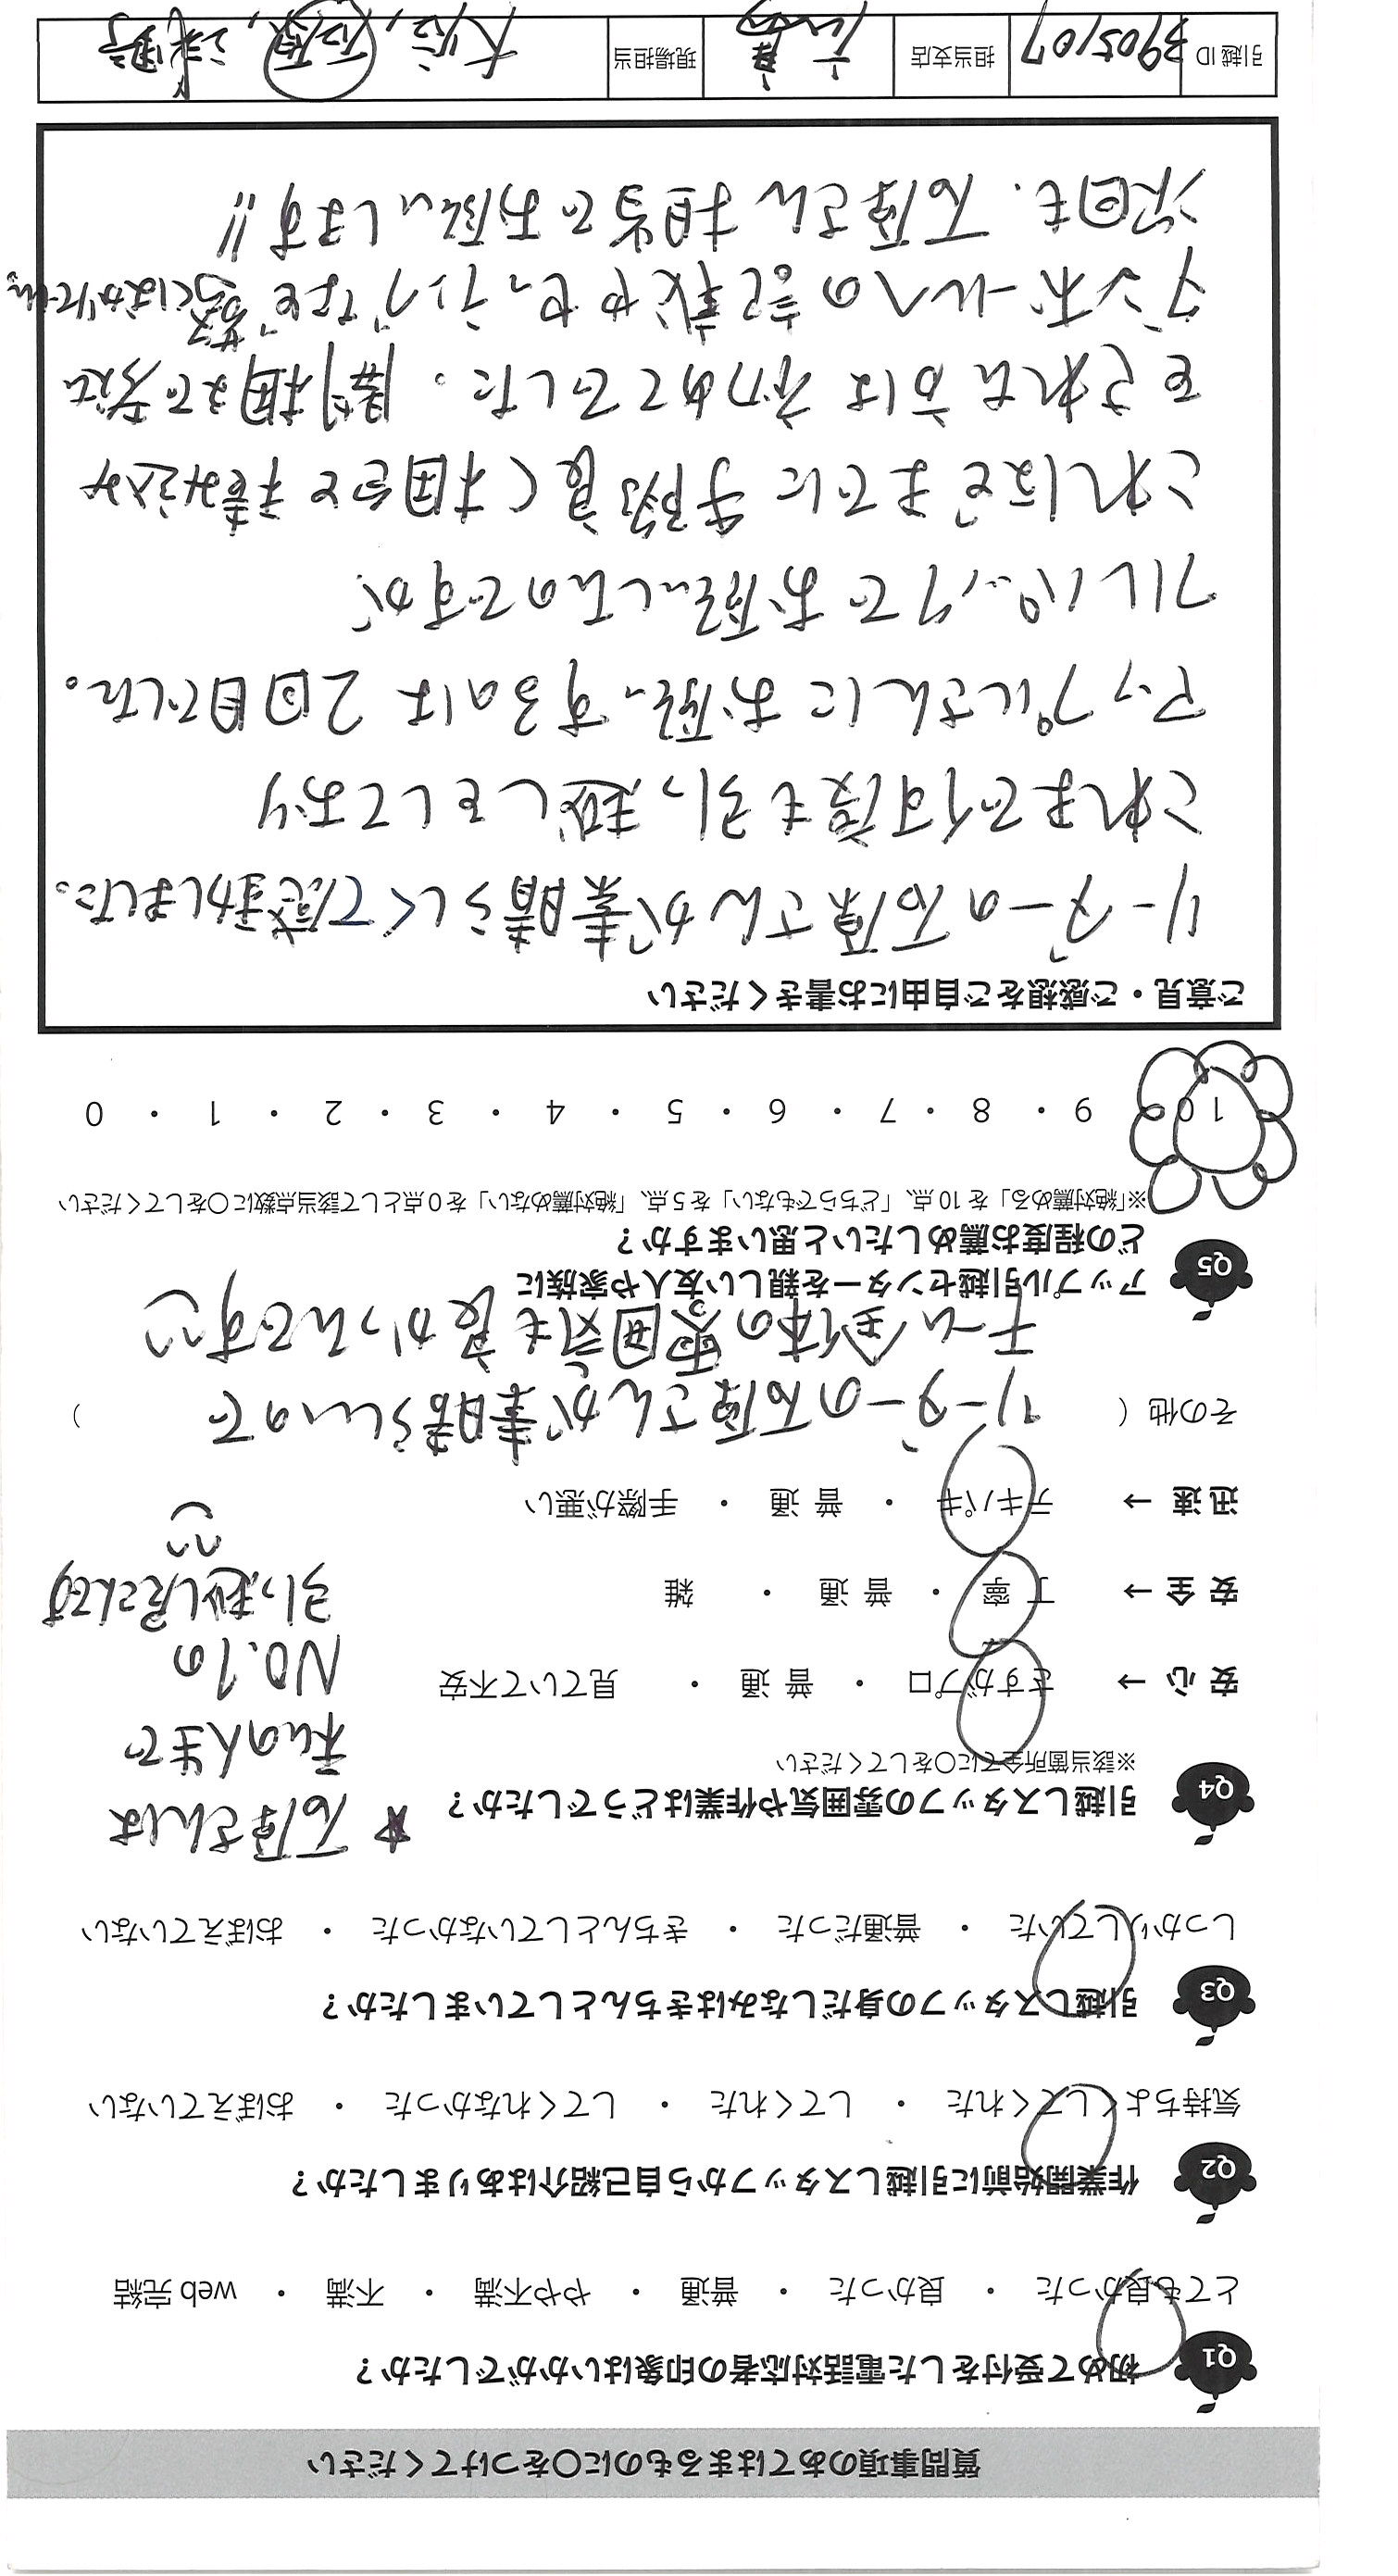 質問事項のあてはまるものに○をつけてください
Q1 初めて受付をした電話対応者の印象はいかがでしたか？
とても良かった ・ 良かった ・ 普通 ・ やや不満 ・ 不満 ・ web 完結
Q2 作業開始前に引越しスタッフから自己紹介はありましたか？
気持ちよくしてくれた ・ してくれた ・ してくれなかった ・ おぼえていない
Q3 引越しスタッフの身だしなみはきちんとしていましたか？
しっかりしていた ・ 普通だった ・ きちんとしていなかった ・ おぼえていない
Q4 引越しスタッフの雰囲気や作業はどうでしたか？
※該当箇所全てに○をしてください
★ 石原さんは
私の人生で
NO.1の
引っ越し屋さんです
安 心 → さすがプロ ・ 普 通 ・ 見ていて不安
安 全 → 丁 寧 ・ 普 通 ・ 雑
迅 速 → テキパキ ・ 普 通 ・ 手際が悪い
その他（ リーダーの石原さんが素晴らしいので ）
チーム全体の雰囲気も良かったです
Q5 アップル引越センターを親しい友人や家族に
どの程度お薦めしたいと思いますか？
※「絶対薦める」を 10 点、「どちらでもない」を 5 点、「絶対薦めない」を 0 点として該当点数に○をしてください
10 ・ 9 ・ 8 ・ 7 ・ 6 ・ 5 ・ 4 ・ 3 ・ 2 ・ 1 ・ 0
ご意見・ご感想をご自由にお書きください
リーダーの石原さんが素晴らしくて感動しました。
これまで何度も引っ越しをしており
アップルさんにお願いするのは2回目でした。
フルパックでお願いしたのですが、
これほどまでに手際良く梱包と積み込み
をされた方は初めてでした。開梱まで考えた
ダンボールへの記載やセッティングなど驚くばかりでした。
次回も、石原さん担当でお願いします!!
引越 ID 3905107 担当支店 現場担当 大谷, 石原,